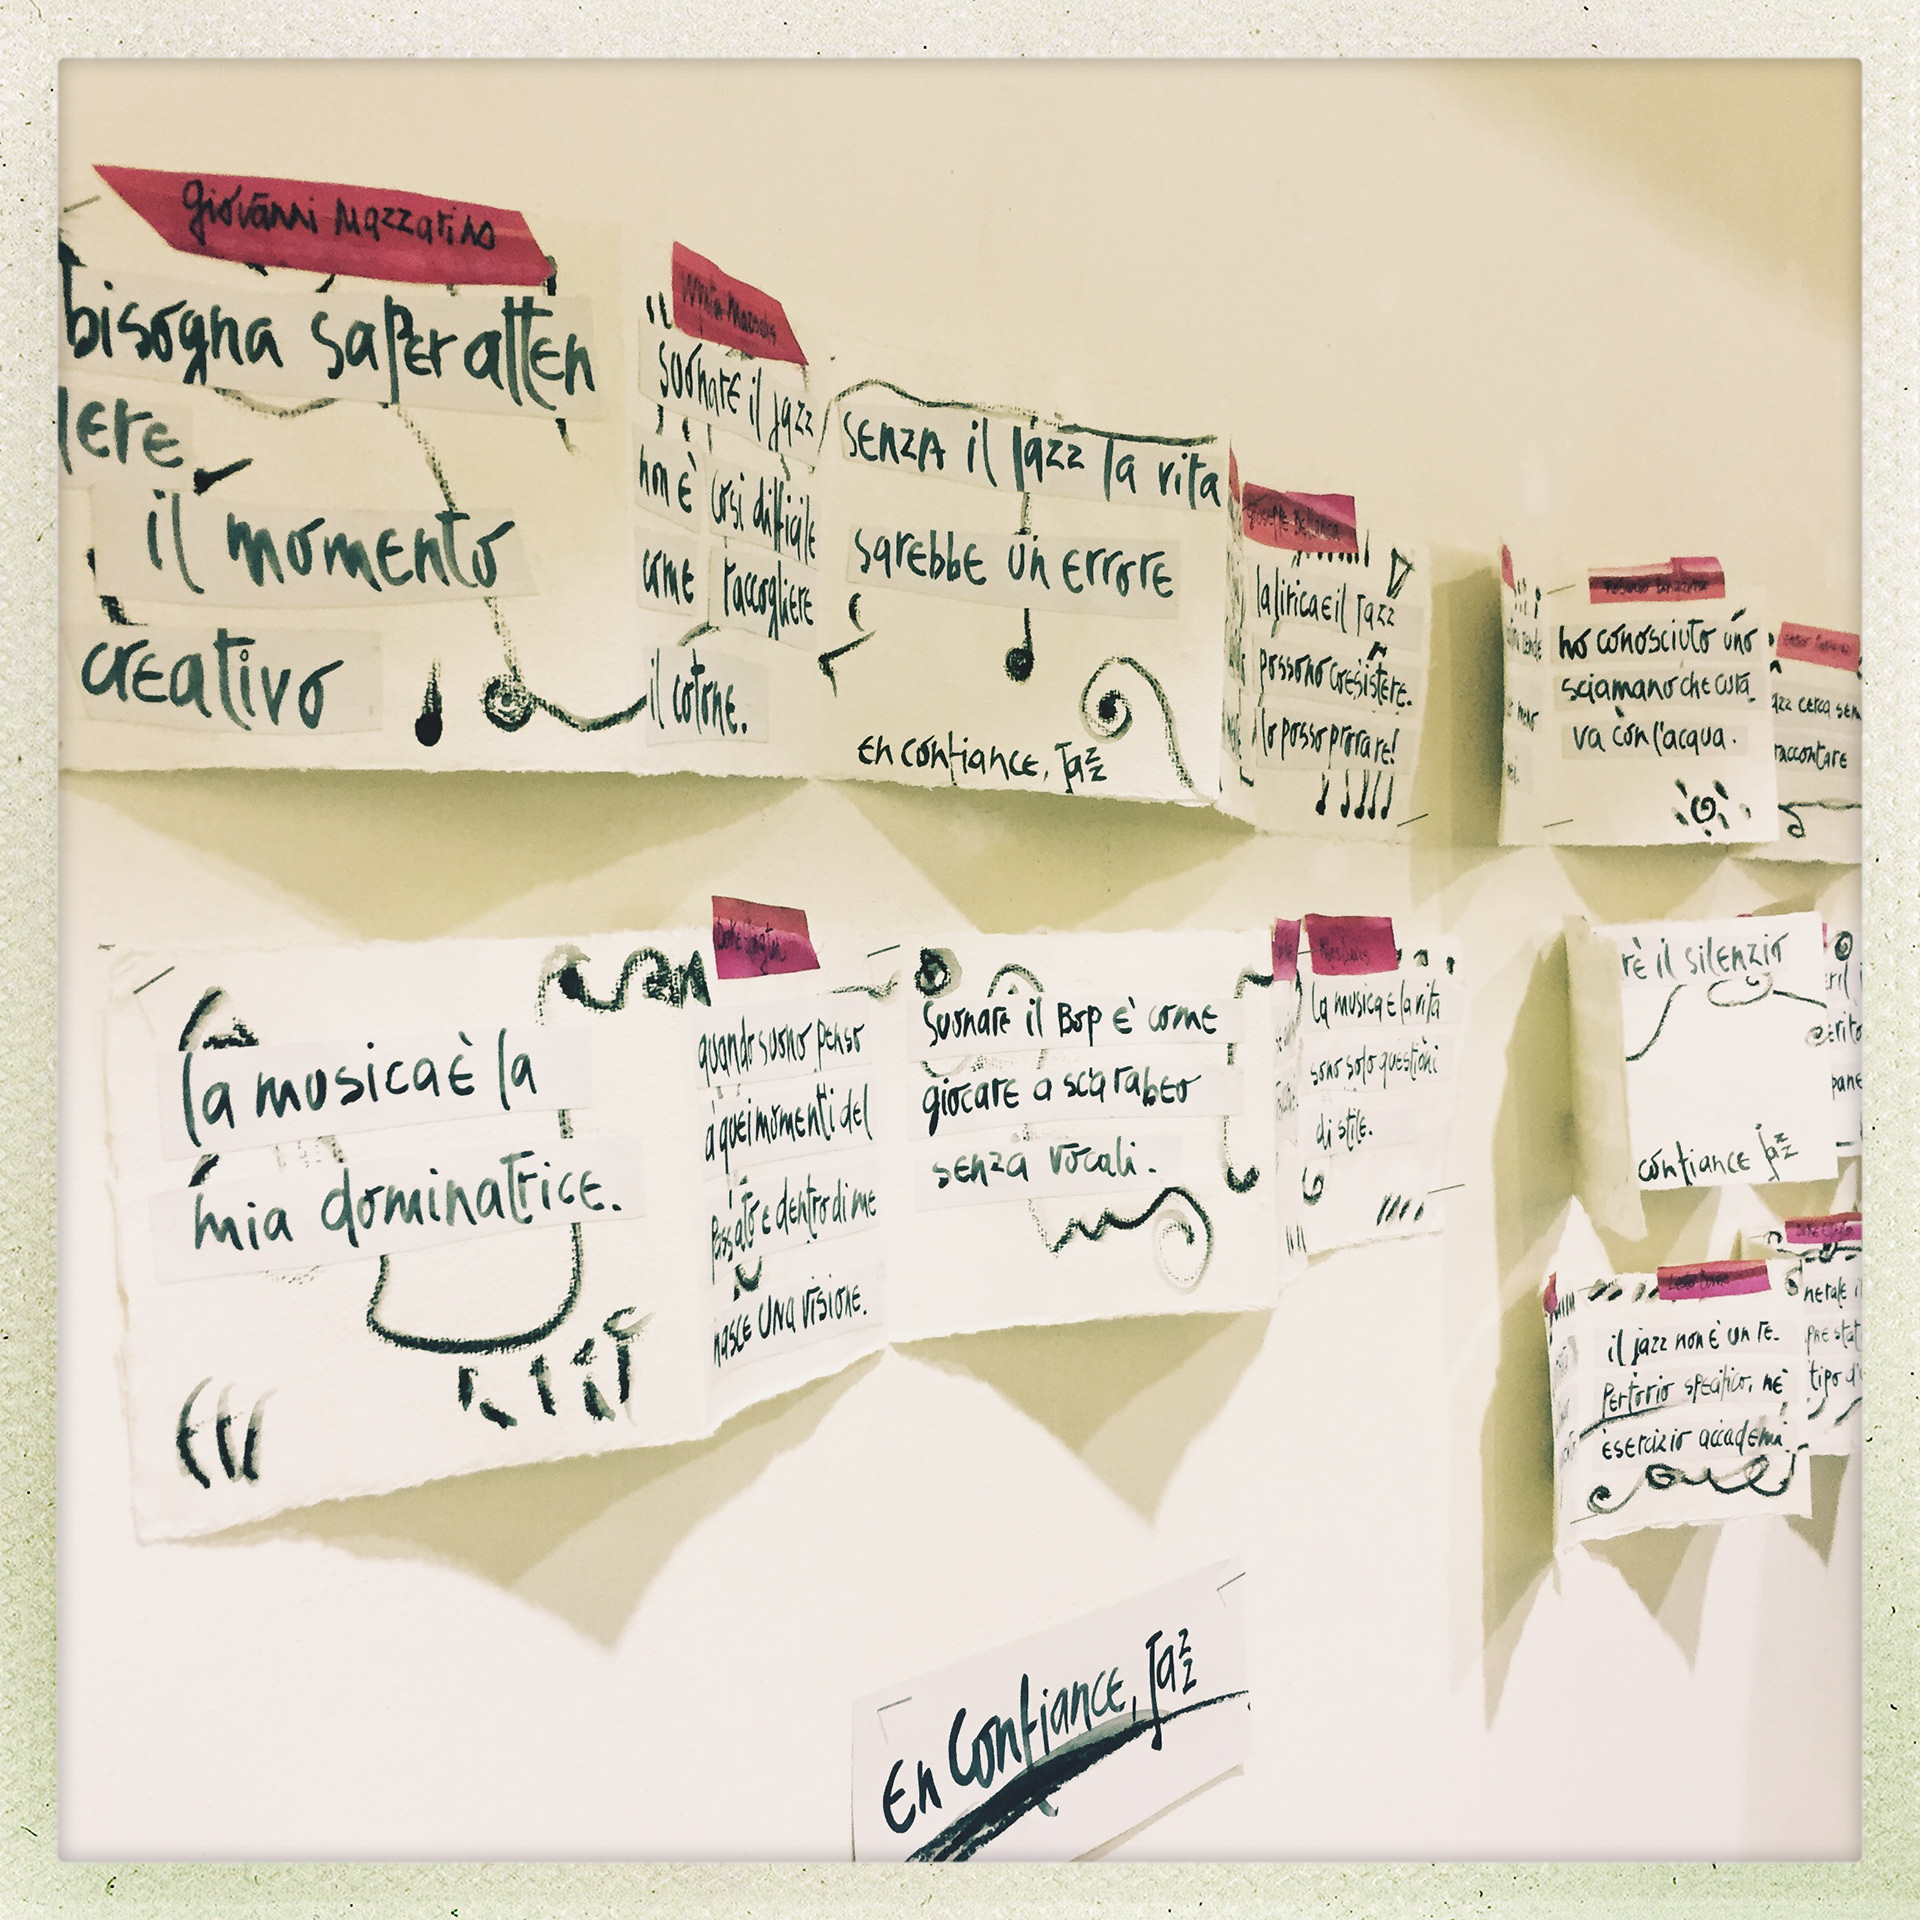 Giovanni Mazzarino
bisogna saper atten
dere
il momento
creativo
suonare il jazz
non è così difficile
come raccogliere
il cotone.
senza il Jazz la vita
sarebbe un errore
en confiance, Jazz
la lirica e il Jazz
possono coesistere.
lo posso provare!
ho conosciuto uno
sciamano che cura
va con l'acqua.
azz cerca sem
raccontare
la musica è la
mia dominatrice.
quando suono penso
a quei momenti del
passato e dentro di me
nasce una visione.
Suonare il Bop è come
giocare a scarabeo
senza vocali.
la musica e la vita
sono solo questioni
di stile.
rè il silenzio
confiance Jazz
il jazz non è un re-
pertorio specifico, nè
esercizio accademi
nerale i
tipo d'
En Confiance, Jazz